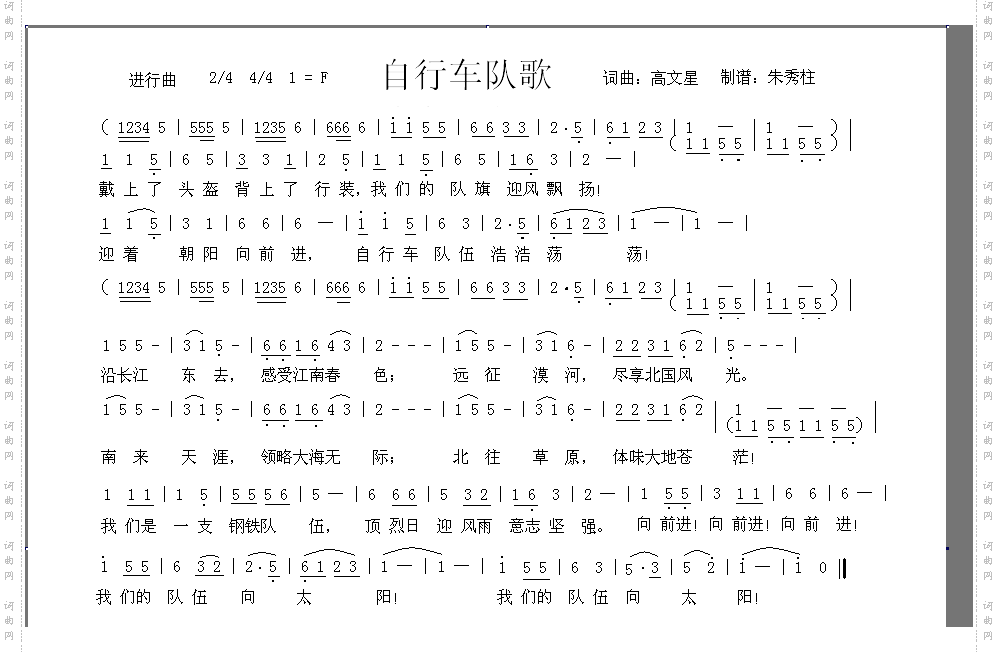 自行车队歌
进行曲 2/4 4/4 1 = F 词曲：高文星 制谱：朱秀柱
( 1234 5 | 555 5 | 1235 6 | 666 6 | i i 5 5 | 6 6 3 3 | 2 · 5 | 6 1 2 3 | 1 — | 1 — ) |
( 1 1 5 5 | 1 1 5 5 )
1 1 5 | 6 5 | 3 3 1 | 2 5 | 1 1 5 | 6 5 | 1 6 3 | 2 — |
戴 上 了 头 盔 背 上 了 行 装，我 们 的 队 旗 迎风 飘 扬！
1 1 5 | 3 1 | 6 6 | 6 — | i i 5 | 6 3 | 2 · 5 | 6 1 2 3 | 1 — | 1 — |
迎 着 朝 阳 向 前 进， 自 行 车 队 伍 浩 浩 荡 荡！
( 1234 5 | 555 5 | 1235 6 | 666 6 | i i 5 5 | 6 6 3 3 | 2 · 5 | 6 1 2 3 | 1 — | 1 — ) |
( 1 1 5 5 | 1 1 5 5 )
1 5 5 - | 3 1 5 - | 6 6 1 6 4 3 | 2 - - - | 1 5 5 - | 3 1 6 - | 2 2 3 1 6 2 | 5 - - - |
沿长江 东 去， 感受江南春 色； 远 征 漠 河， 尽享北国风 光。
1 5 5 - | 3 1 5 - | 6 6 1 6 4 3 | 2 - - - | 1 5 5 - | 3 1 6 - | 2 2 3 1 6 2 | 1 — — — |
(1 1 5 5 1 1 5 5)
南 来 天 涯， 领略大海无 际； 北 往 草 原， 体味大地苍 茫！
1 1 1 | 1 5 | 5 5 5 6 | 5 — | 6 6 6 | 5 3 2 | 1 6 3 | 2 — | 1 5 5 | 3 1 1 | 6 6 | 6 — |
我 们是 一 支 钢铁队 伍， 顶 烈日 迎 风雨 意志 坚 强。 向 前进！ 向 前进！ 向 前 进！
i 5 5 | 6 3 2 | 2 · 5 | 6 1 2 3 | 1 — | 1 — | i 5 5 | 6 3 | 5 · 3 | 5 2 | i — | i 0 ‖
我 们的 队 伍 向 太 阳！ 我 们的 队 伍 向 太 阳！